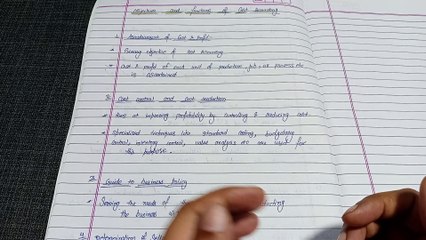 Objectives and functions of Cost Accounting
1. Ascertainment of Cost & Profit
Primary objective of cost Accounting
cost & profit of each unit of production, job or process etc
is ascertained
2. Cost control and Cost reduction
Aims at improving profitability by controlling & reducing cost
Specialised techniques like standard costing, budgetary
control, inventory control, value analysis etc are used for
this purpose.
3. Guide to business policy
Serving the needs of
the business
4. Determination of Selling